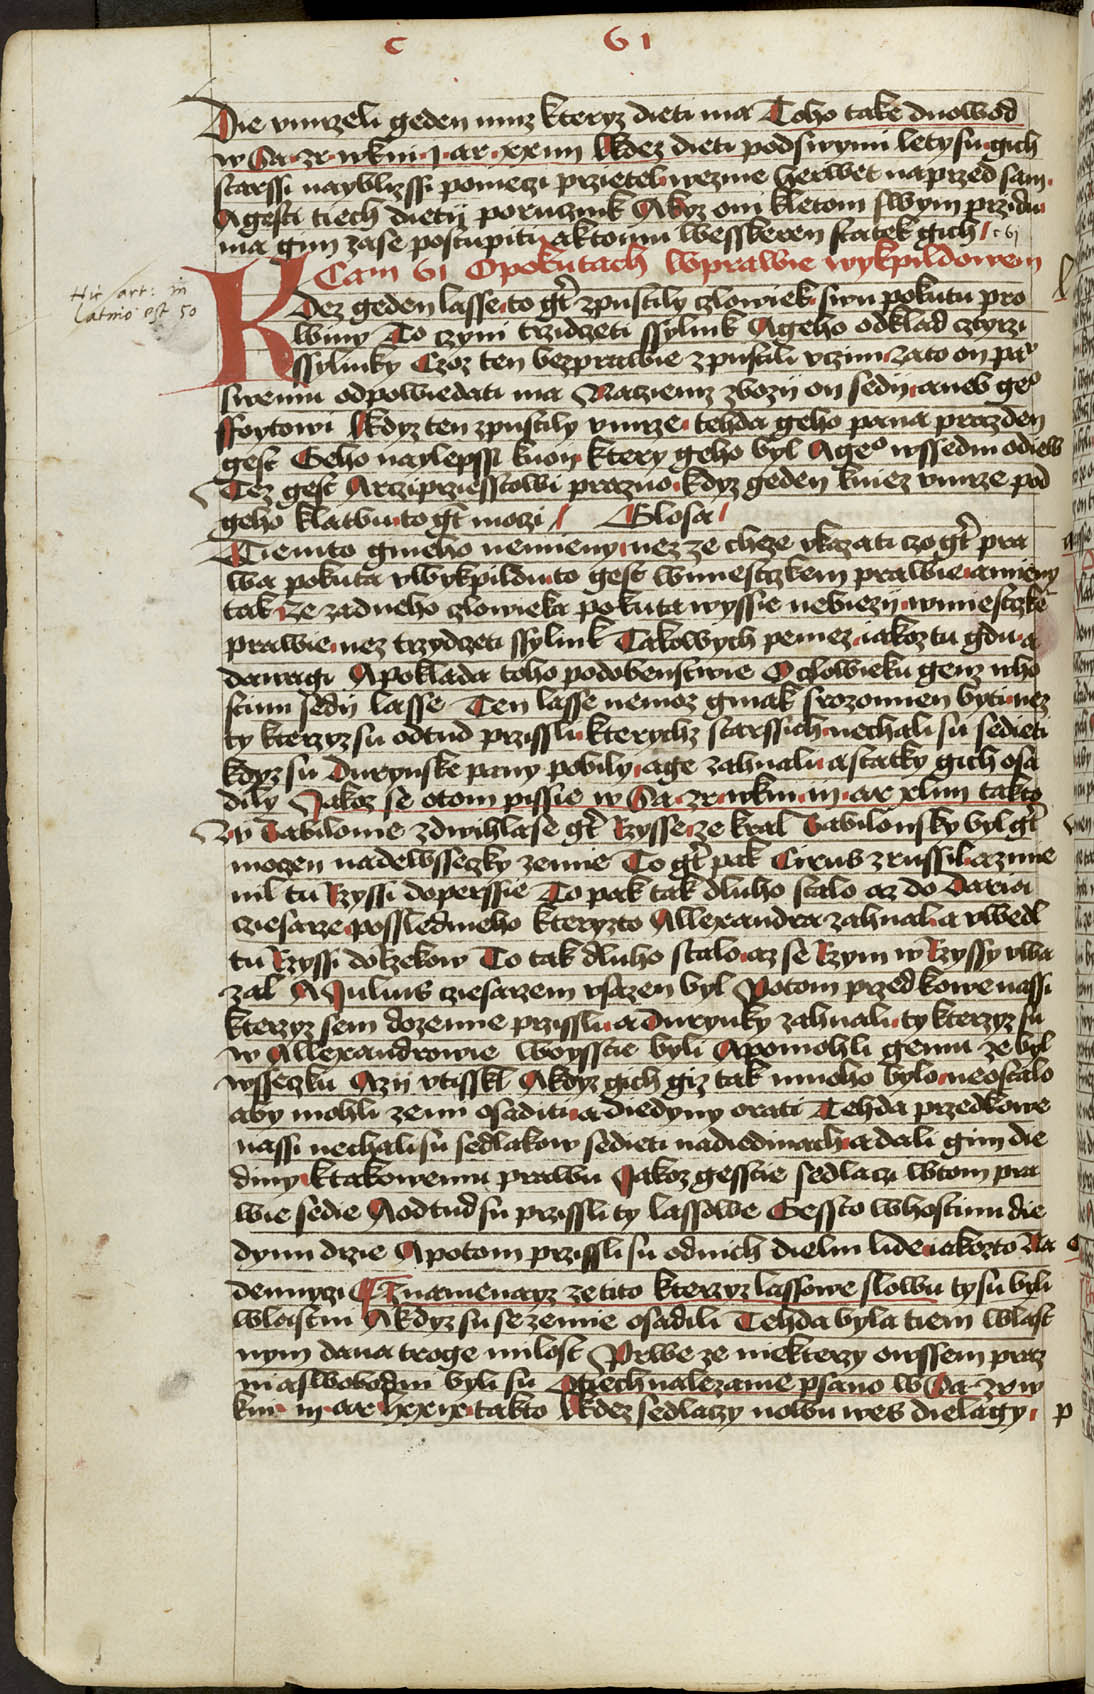 c 61
Die vmrzeli geden muz kteryz dieti ma Toho take duowod
w Sa. zr. wkni. j. ar. xxiiii Kdez dieti podswymi lety su gich
starssi nayblizssi pomeczi przietel wezme herwet naprzed sam.
Agest tiech dietij porucznik Abyz oni kletom swym przidu
ma gim zase postupiti aktomu wesskeren statek gich / c 61
Cam 61 Opokutach wprawie wykpildowem
Hic art: in
latino est 50
Kdez geden lasse to gest zpustily czlowiek swu pokutu pro
winy To czyni trzidzeti ssylink Ageho odklad cztyrzi
ssylinky Czoz ten bezprawie zpustili vczini zato on pan
swemu odpowiedati ma Nacziemz zbozij on sedij aneb geo
ffoytowi Kdyz ten zpustily vmrze tehda geho pana prazden
gest Geho naylepssi kuon ktery geho byl Ageo wssedni odiew
Tez gest Arcziprziesstowi prazno kdyz geden kniez vmrze pod
geho klatbu to gest moczi / Glosa /
Tiemto gineho nemieny nez ze chcze vkazati czo gest pra
wa pokuta vwykpildu to gest wmiestczkem prawie a mieny
tak ze zadneho czlowieka pokuta wyssie nebiezij wmiestczke
prawie nez trzydczeti ssylink Takowych peniez iakoz tu gdu a
dawagi Apoklada toho podobenstwie O czlowieku genz who
stinu sedij lasse Ten lasse nemoz ginak srozomien byti nez
ty kterzyz su odtud przissli kterychz starssich nechali su sedieti
kdyz su Durynske pany pobily a ge zahnali a statky gich osa
dily Jakoz se otom pissie w Sa. zr. wkni. iii. ar xliiii takto
W Babilonie zdwihla se gest Rzysse ze kral Babilonsky byl gest
moczen nadewsseczky zemie To gest pak Cirus zrussil a zmie
nil tu Rzyssi doperssie To pak tak dluho stalo az do Daria
cziesarze posslednieho kteryzto Allexandra zahnal a vwedl
tu Rzyssi doRzekow To tak dluho stalo az se Rzym w Rzyssy vwa
zal A Julius cziesarzem vsazen byl Potom przedkowe nassi
kterzyz sem dozemie przissli a Durynky zahnali ty kterzyz su
w Allexandrowie woysstie byli Apomohli gemu ze byl
wsseczku Azij vtisskl Akdyz gich giz tak mnoho bylo neostalo
aby mohli zemi osaditi a diedyny orati Tehda przedkowe
nassi nechali su sedlakow sedieti nadiedinach a dali gim die
diny ktakowemu prawu Jakoz gesstie sedlaczi wtom pra
wie sedie Aodtud su przissli ty lassowe Gessto whostinu die
dynu drzie Apotom przissli su odnich dielni lide iakozto Na
denniczi Znamenayz zetito kterzyz lassowe slowu ty su byli
wlastni Akdyz su se zemie osadili Tehda byla tiem wlast
nym dana troge milost Prwe ze niekterzy owssem praz
ni a swobodni byli su Otiech nalezame psano w Sa. zr w
kni. iii. ar lxxix takto Kdez sedlaczy nowu wes dielagy. p